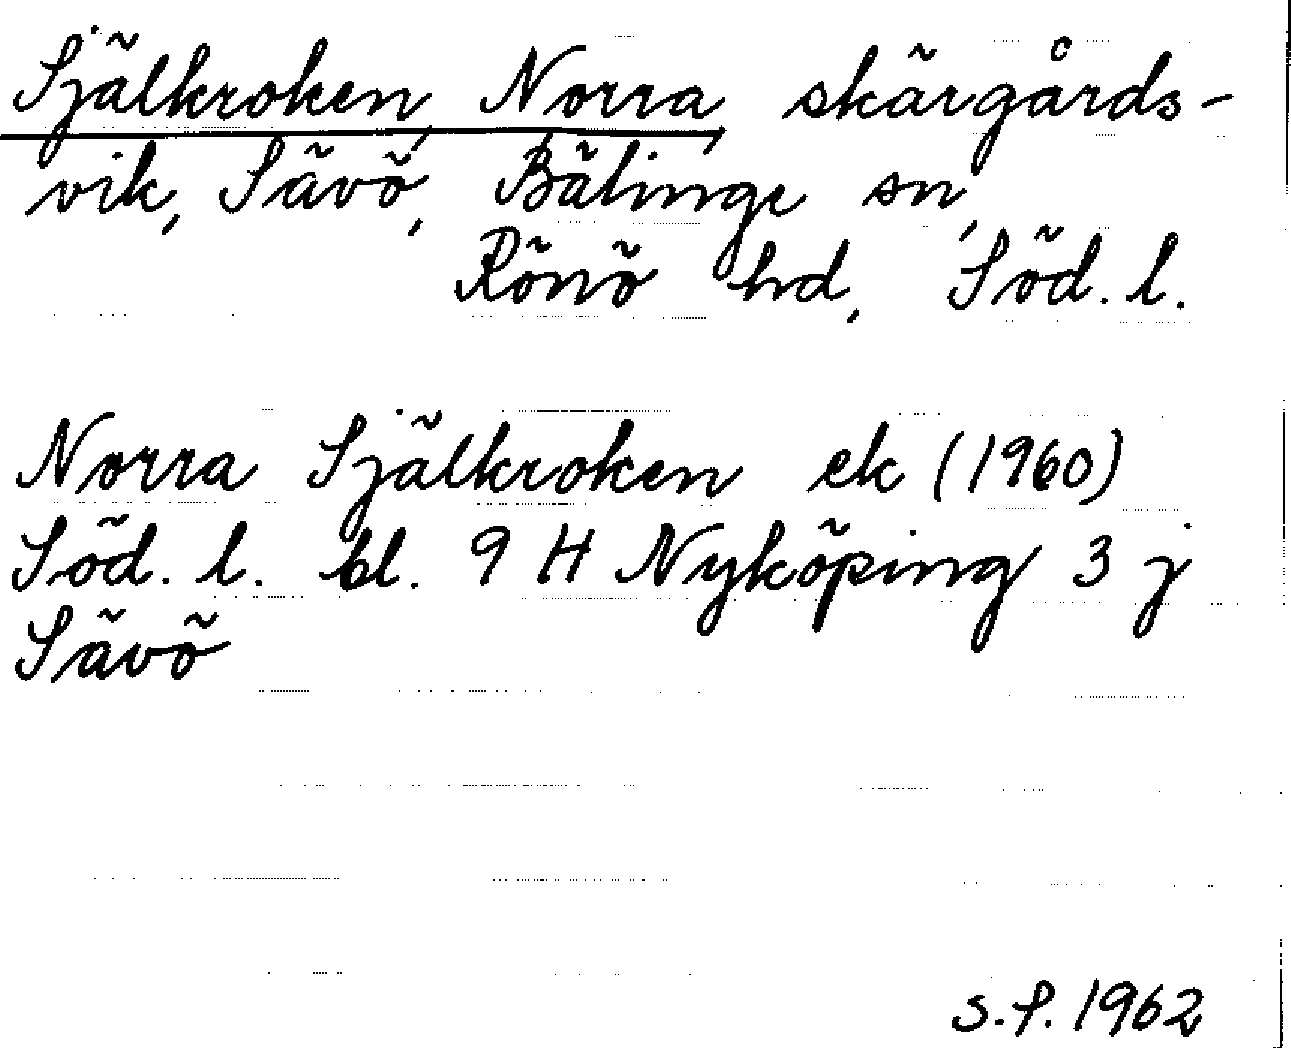 Själkroken, Norra, skärgårds-
vik, Sävö, Bälinge sn,
Rönö hd, Söd. l.
Norra Själkroken ek (1960)
Söd. l. bl. 9 H Nyköping 3 j
Sävö
S.P. 1962